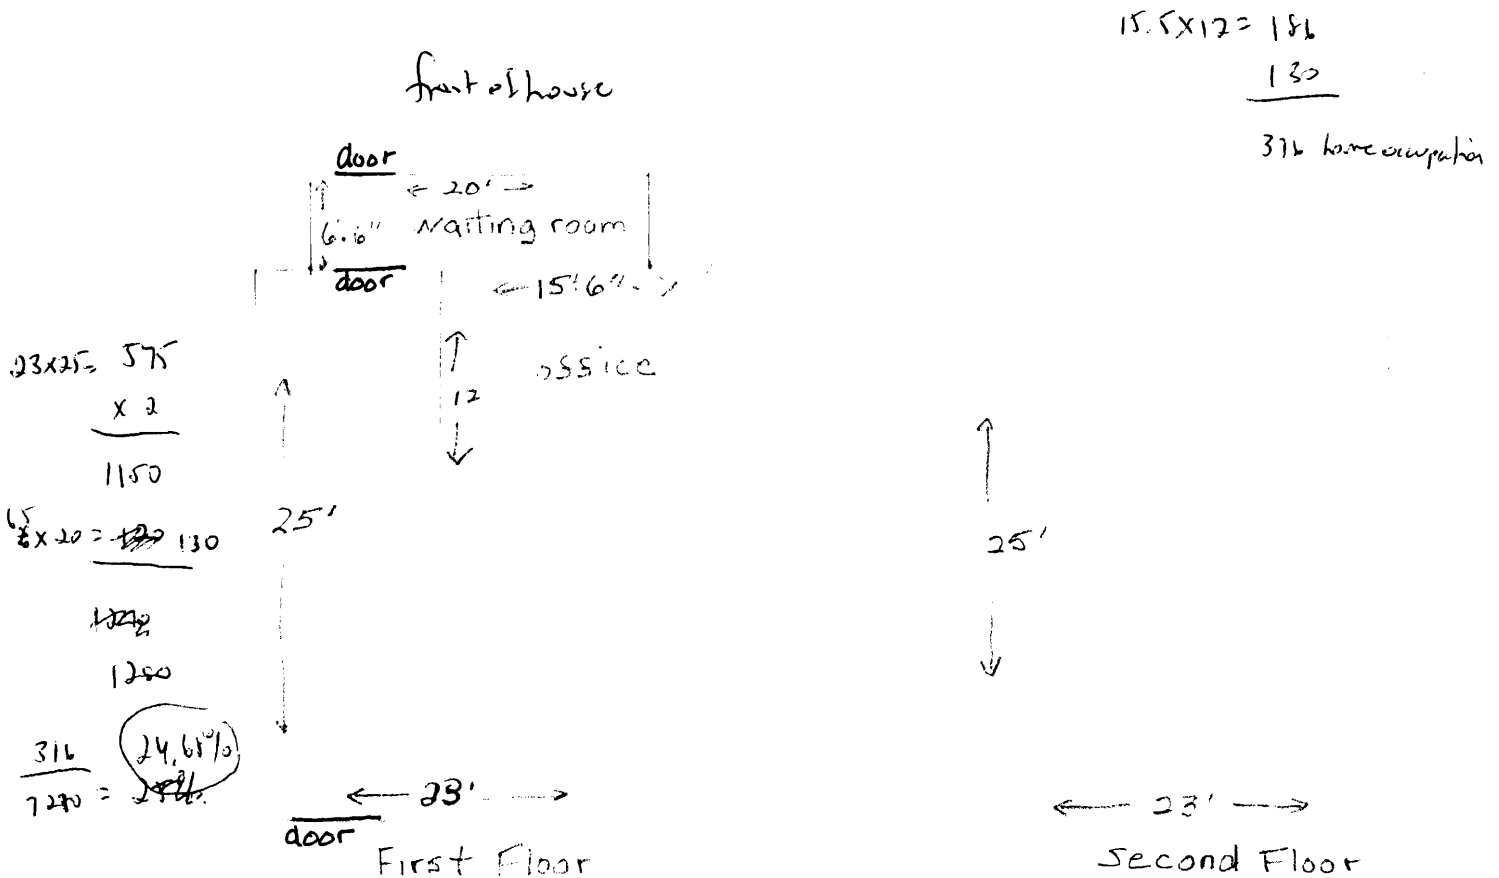 15.5x12= 186
130
316 home occupation
front of house
door
20'
6.6" waiting room
door
15'6"
office
12
23x25= 575
x 2
1150
6.5 x 20 = 130
1280
316
1280 = 24.68%
25'
23'
door
First Floor
25'
23'
Second Floor